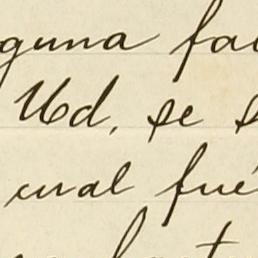 guna fa
Ud, se s
cual fué